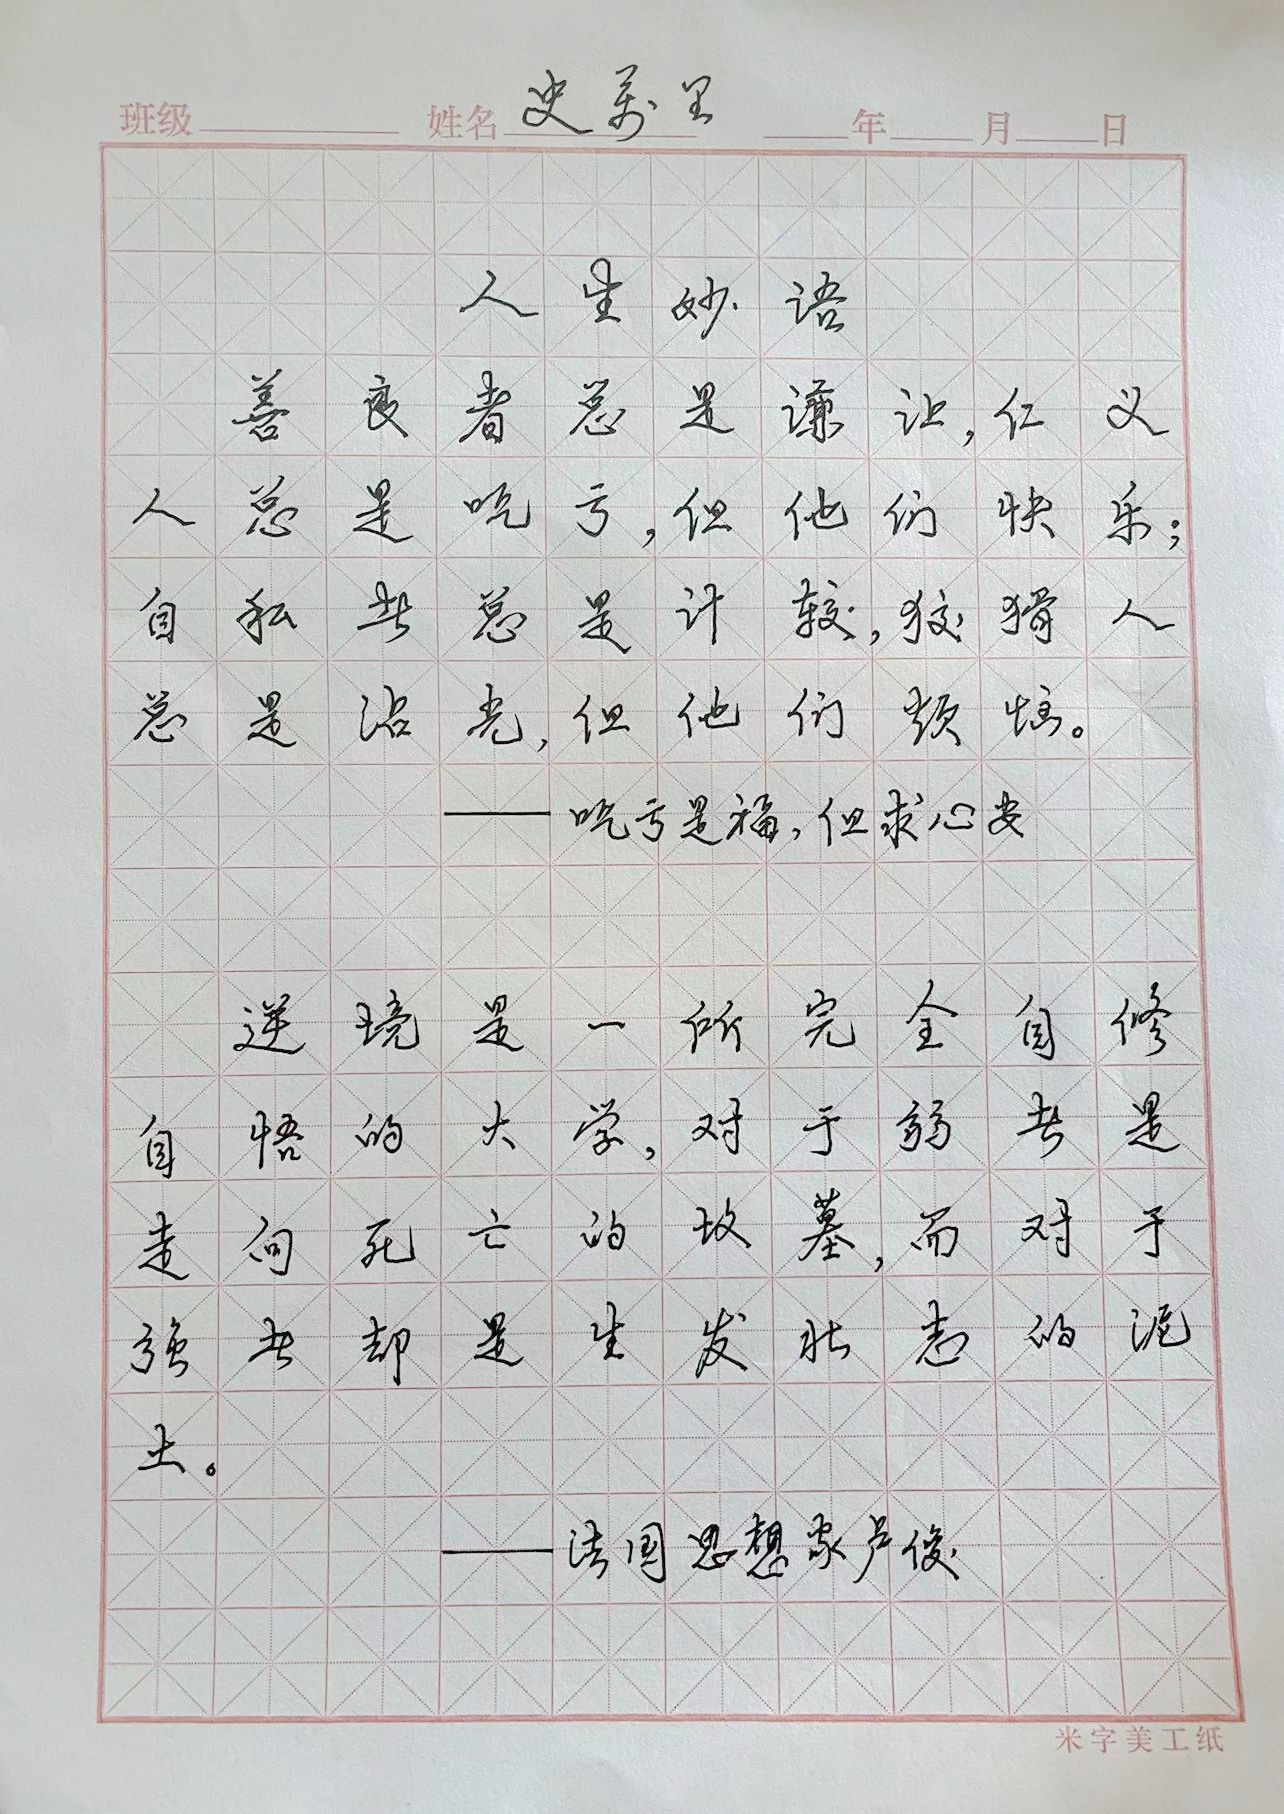 班级 姓名 史万里 年 月 日
人生妙语
善良者总是谦让,仁义
人总是吃亏,但他们快乐;
自私者总是计较,狡猾人
总是沾光,但他们烦恼。
——吃亏是福,但求心安
逆境是一所完全自修
自悟的大学,对于弱者是
走向死亡的坟墓,而对于
强者却是生发壮志的泥
土。
——法国思想家卢俊
米字美工纸